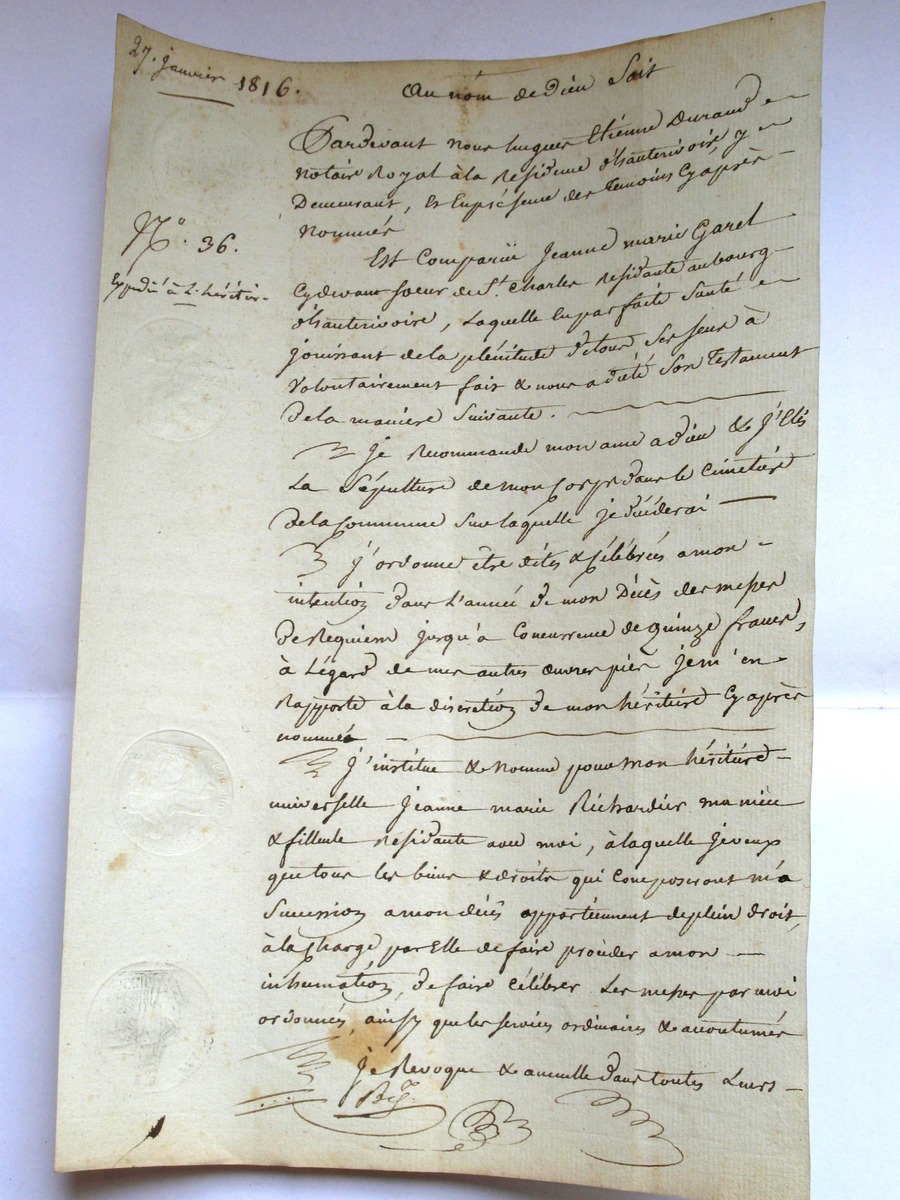 27. janvier 1816.
au nom de dieu Soit
Pardevant nous hugues Etienne Durand
notaire Royal à la Residence d'hauterivoire, y
Demeurant, et En présence des temoins Cyaprès
Nommés
N° 36.
Expedié à L'héritière
Est Comparüe Jeanne marie Garel
Cydevant Soeur de St. Charles Residante au bourg
d'hauterivoire, Laquelle En parfaite Santé
jouissant de la plénitude de tous Ses Sens à
Volontairement fait & nous a dicté Son Testament
De la maniere Suivante.
je Recommande mon ame a dieu & j'Elis
La Sépulture de mon Corps dans le Cimetière
De la Commune Sur laquelle je décéderai
j'ordonne être dites & Célébrées a mon
intention dans L'année de mon Décès des messes
De Requiem jusqu'à Concurrence de quinze francs,
à Légard de mes autres œuvres pies je m'en
Rapporte à la discretion de mon héritiere Cyaprès
nommée
J'institue & Nomme pour mon héritiere
universelle Jeanne marie Richardier ma niéce
& filleule Résidante avec moi, à laquelle je veux
que tous les biens & droits qui Composeront ma
Succession a mon décès appartiennent de plein droit,
à la Charge par Elle de faire procéder a mon
inhumation, de faire Célébrer Les messes par moi
ordonnées, ainsy que les services ordinaires & accoutumés
Je Revoque & annulle dans toutes Leurs